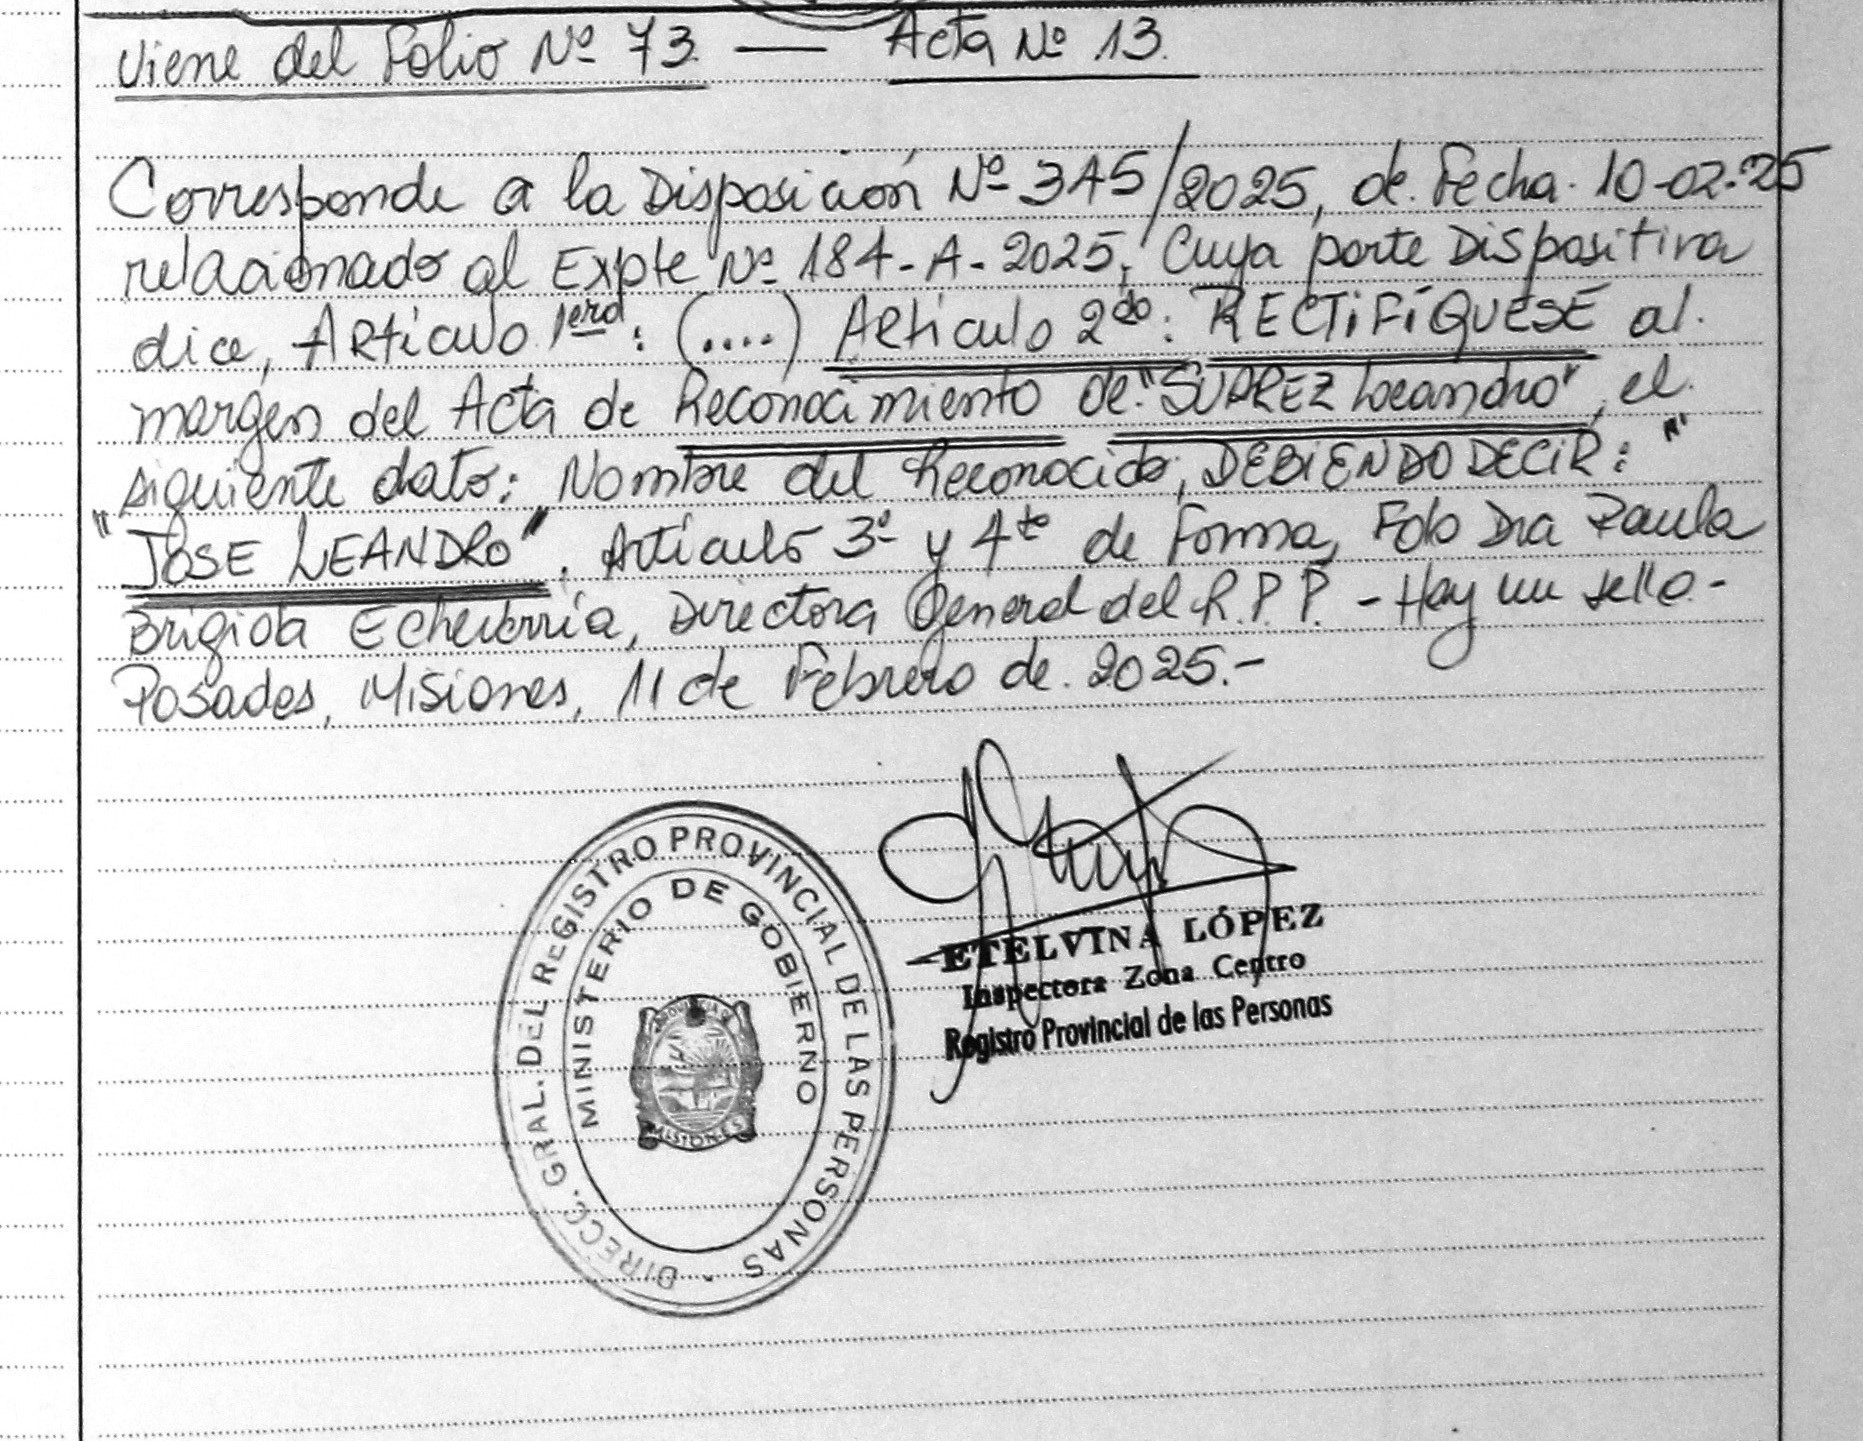 Viene del Folio Nº 73. — Acta Nº 13.
Corresponde a la Disposición Nº 345/2025, de Fecha 10-02-25
relacionado al Expte Nº 184-A-2025, Cuya parte Dispositiva
dice, Artículo 1ero: (....) Artículo 2do: RECTIFÍQUESE al
margen del Acta de Reconocimiento de "SUAREZ Leandro", el
siguiente dato: Nombre del Reconocido, DEBIENDO DECIR: "
"JOSE LEANDRO". Artículo 3º y 4to de Forma, Fdo Dra Paula
Brigida Echeverría, Directora General del R.P.P. - Hay un sello.-
Posadas, Misiones, 11 de Febrero de 2025.-
DIRECC. GRAL. DEL REGISTRO PROVINCIAL DE LAS PERSONAS
MINISTERIO DE GOBIERNO
PROVINCIA DE
MISIONES
ETELVINA LÓPEZ
Inspectora Zona Centro
Registro Provincial de las Personas